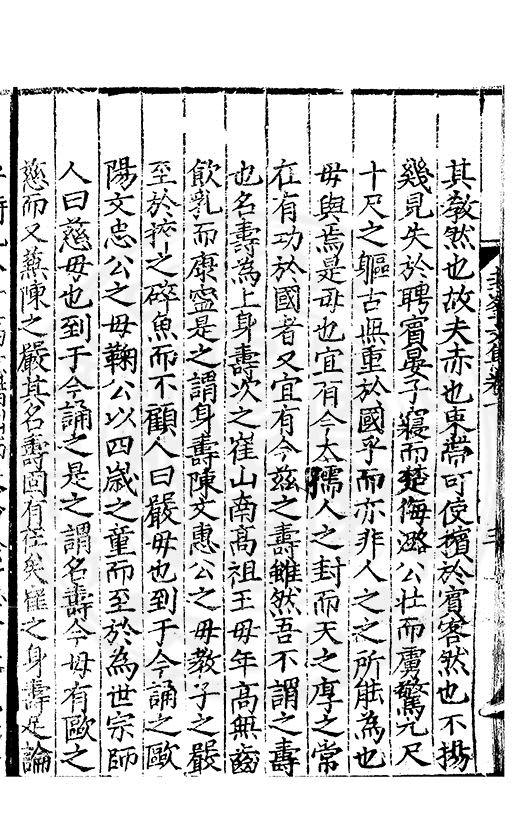 其敎然也故夫赤也束帶可使擯於賓客然也不揚
幾見失於聘賓晏子寢而楚侮潞公壯而虜驚九尺
十尺之軀古嘗重於國乎而亦非人之之所能為也
毋與焉是毋也宜有今太孺人之封而天之厚之常
在有功於國者又宜有今茲之壽雖然吾不謂之壽
也名壽為上身壽次之崔山南高祖王毋年高無齒
飲乳而康寧是之謂身壽陳文惠公之毋教子之嚴
至於擊之碎魚而不顧人曰嚴毋也到于今誦之歐
陽文忠公之毋鞠公以四歲之童而至於為世宗師
人曰慈毋也到于今誦之是之謂名壽今毋有歐之
慈而又兼陳之嚴其名壽固有在矣崔之身壽足論